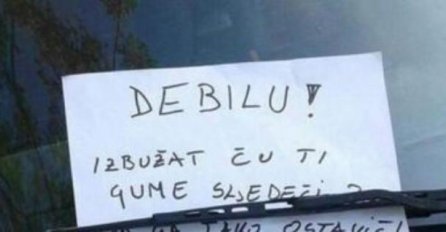 DEBILU!
IZBUŽAT ČU TI
GUME SLJEDEČI
TAKO OSTAVIŠ!